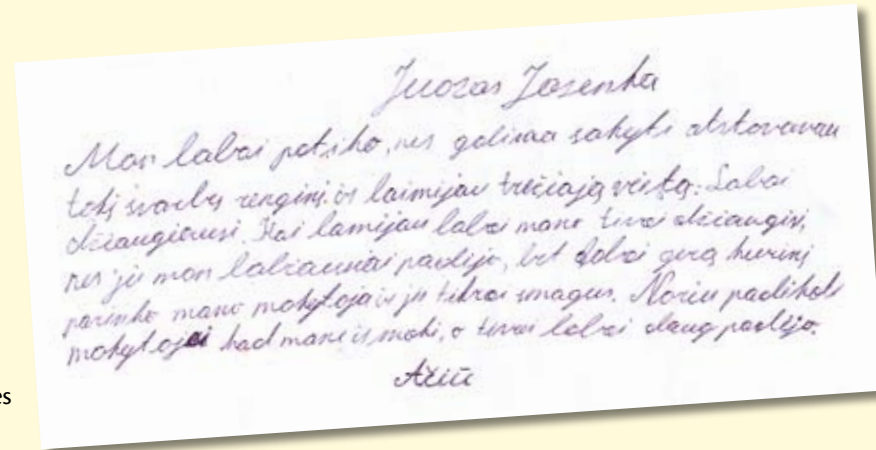 Juozas Jasenka
Man labai patiko, nes galima sakyti atstovavau
tokį svarbų renginį ir laimėjau trečiąją vietą. Labai
džiaugiausi. Kai lamijau labai mano tėvai džiaugėsi,
nes jie man labiausiai padėjo, bet labai gerą kurinį
parinko mano mokytoja ir jis tikrai smagus. Noriu padėkoti
mokytojai kad mane išmokė, o tėvai labai daug padėjo.
Ačiū
es